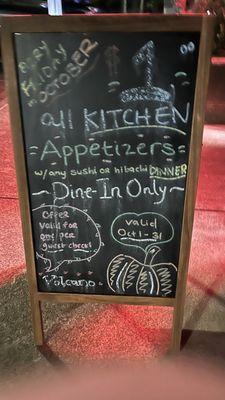 EVERY
FRIDAY
IN
OCTOBER
$1.00
all KITCHEN
Appetizers
w/any sushi or hibachi DINNER
~Dine-In Only~
Offer
valid for
one per
guest check!
valid
Oct 1-31
Volcano